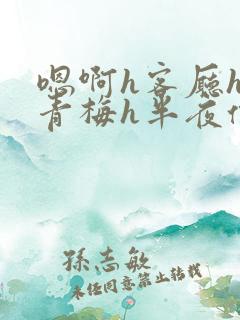 嗯啊h客厅h
青梅h半夜
孫志敏
未经同意禁止转载